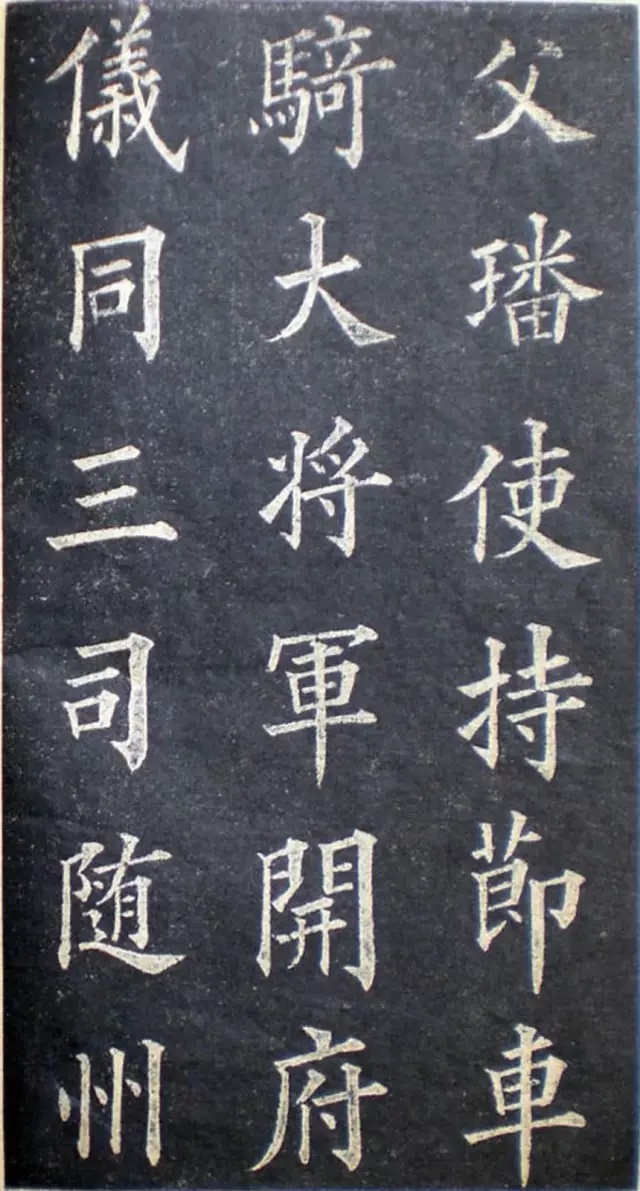 父璠使持節車
騎大将軍開府
儀同三司随州